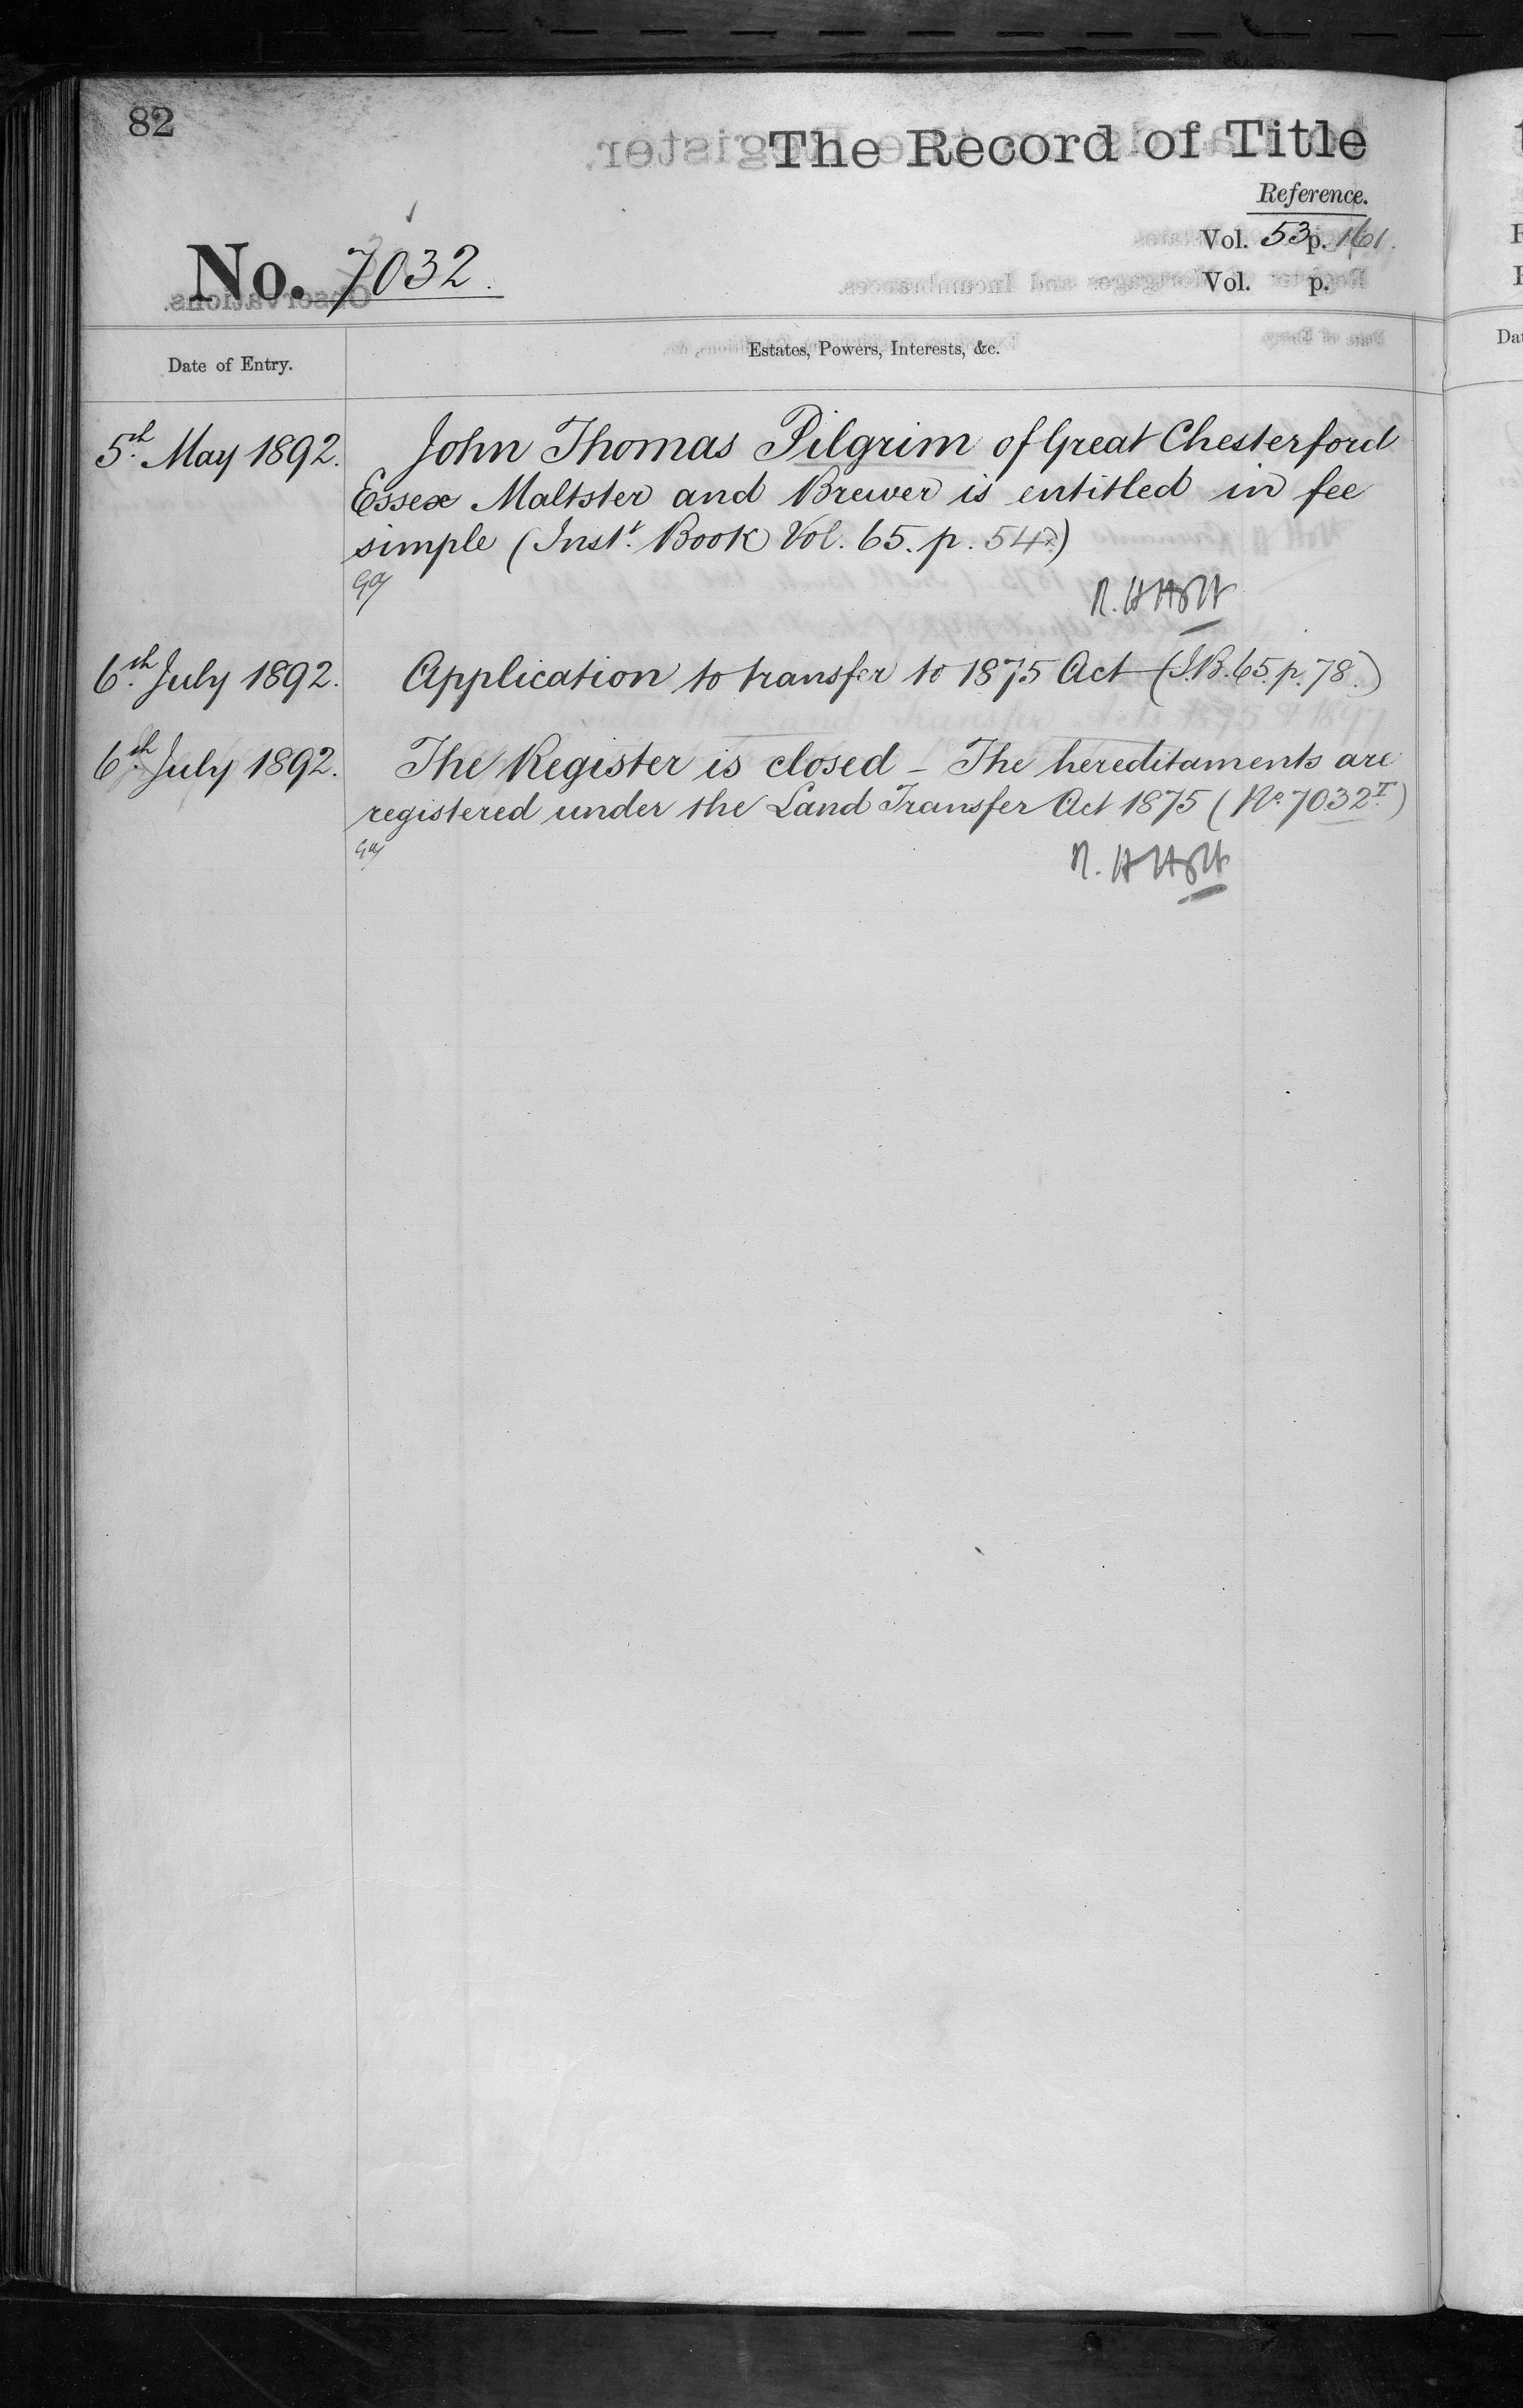 82
The Record of Title
Reference.
Vol. 53 p. 161.
No. 7032.
Vol. p.
Date of Entry.
Estates, Powers, Interests, &c.
5th May 1892. John Thomas Pilgrim of Great Chesterford
Essex Maltster and Brewer is entitled in fee
simple (Inst. Book Vol. 65. p. 54)
R. H Holt
6th July 1892. Application to transfer to 1875 Act (I.B. 65. p. 78.)
6th July 1892. The Register is closed – The hereditaments are
registered under the Land Transfer Act 1875 (No. 7032I)
R. H Holt
Dat